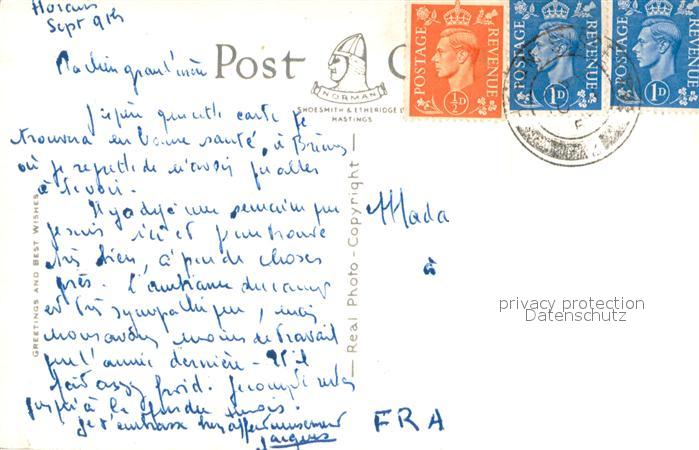 Sept 9th
Ma chère grand'mère
J'espère que cette carte te
trouvera en bonne santé, à Brieuc
où je regrette de n'avoir pu aller
te revoir.
Il y a déjà une semaine que
je suis ici et je me trouve
très bien, à peu de choses
près. L'ambiance du camp
est très sympathique, mais
nous avons moins de travail
que l'année dernière - Il
fait assez froid. Je compte rester
jusqu'à la fin du mois.
Je t'embrasse très affectueusement
Jacques
GREETINGS AND BEST WISHES
Post C
NORMAN
SHOESMITH & ETHERIDGE L
HASTINGS
Real Photo - Copyright
POSTAGE REVENUE
½D
POSTAGE REVENUE
1D
POSTAGE REVENUE
1D
Mada
à
FRA
privacy protection
Datenschutz